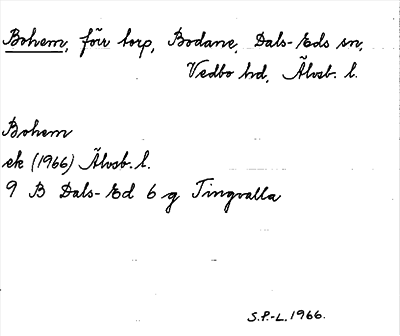 Bohem, förr torp, Bodane, Dals-Eds sn,
Vedbo hd, Älvsb. l.
Bohem
ek (1966) Älvsb. l.
9 B Dals-Ed 6 g Tingvalla
S.P.-L. 1966.